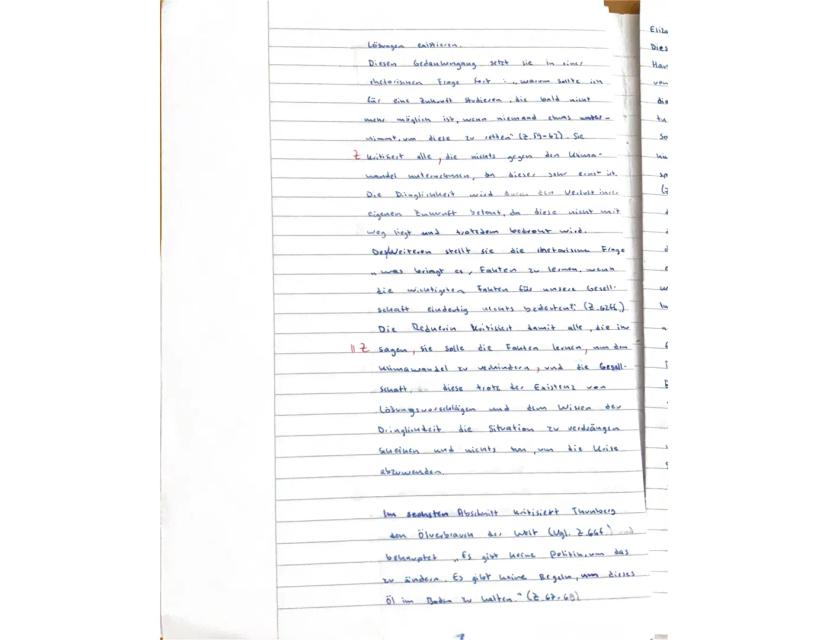 Lösungen existieren.
Diesen Gedankengang setzt sie in einer
rhetorischen Frage fort: „warum sollte ich
für eine Zukunft studieren, die bald nicht
mehr möglich ist, wenn niemand etwas unter-
nimmt, um diese zu retten" (Z. 59-62). Sie
Z kritisiert alle, die nichts gegen den Klima-
wandel unternehmen, da dieser sehr ernst ist.
Die Dringlichkeit wird durch den Verlust ihrer
eigenen Zukunft betont, da diese nicht weit
weg liegt und trotzdem bedroht wird.
Des Weiteren stellt sie die rhetorische Frage
„was bringt es, Fakten zu lernen, wenn
die wichtigsten Fakten für unsere Gesell-
schaft eindeutig nichts bedeuten" (Z. 62ff.)
Die Rednerin kritisiert damit alle, die ihr
|| Z sagen, sie solle die Fakten lernen, um den
Klimawandel zu verhindern, und die Gesell-
schaft, diese trotz der Existenz von
Lösungsvorschlägen und dem Wissen der
Dringlichkeit die Situation zu verdrängen
scheinen und nichts tun, um die Krise
abzuwenden.
Im sechsten Abschnitt kritisiert Thunberg
den Ölverbrauch der Welt (Vgl. Z. 66f.) und
behauptet „Es gibt keine Politik, um das
zu ändern. Es gibt keine Regeln, um dieses
Öl im Boden zu halten." (Z. 67-69)
Eliza
Dies